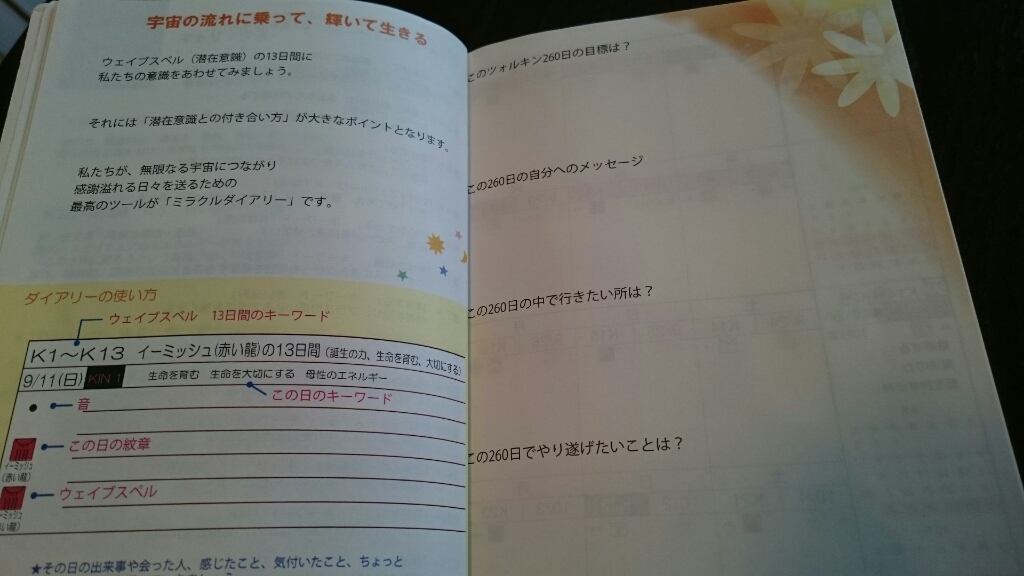 宇宙の流れに乗って、輝いて生きる
ウェイブスペル（潜在意識）の13日間に
私たちの意識をあわせてみましょう。
それには「潜在意識との付き合い方」が大きなポイントとなります。
私たちが、無限なる宇宙につながり
感謝溢れる日々を送るための
最高のツールが「ミラクルダイアリー」です。
ダイアリーの使い方
ウェイブスペル 13日間のキーワード
K1～K13 イーミッシュ(赤い龍)の13日間（誕生の力、生命を育む、大切にする）
9/11(日) KIN 1 生命を育む 生命を大切にする 母性のエネルギー
この日のキーワード
音
この日の紋章
イーミッシュ
(赤い龍)
ウェイブスペル
★その日の出来事や会った人、感じたこと、気付いたこと、ちょっと
このツォルキン260日の目標は？
この260日の自分へのメッセージ
この260日の中で行きたい所は？
この260日でやり遂げたいことは？